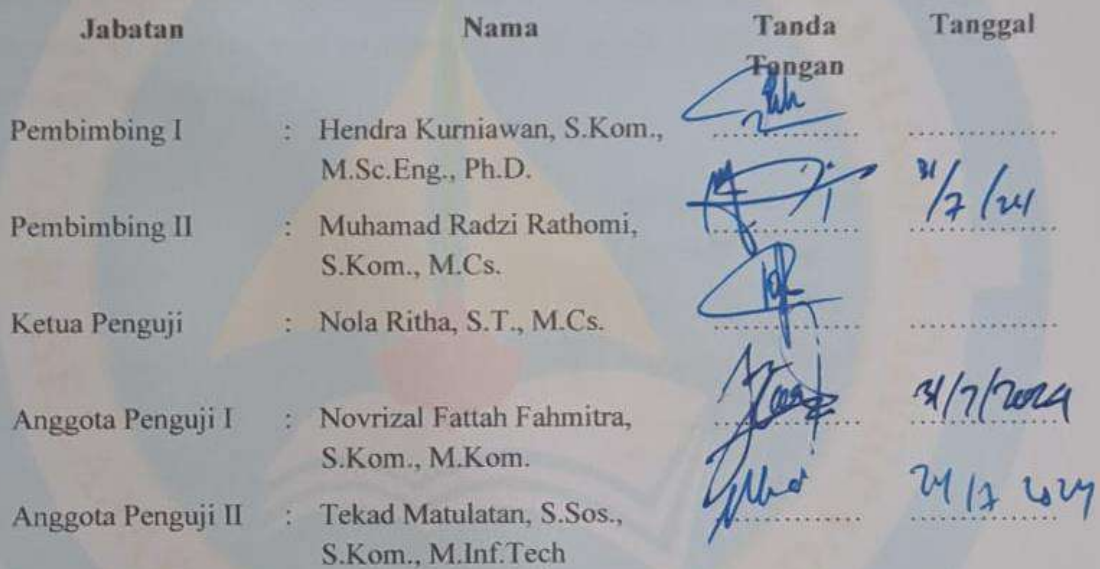 Jabatan Nama Tanda Tanggal
Tangan
Pembimbing I : Hendra Kurniawan, S.Kom., .............. ..............
M.Sc.Eng., Ph.D.
Pembimbing II : Muhamad Radzi Rathomi, .............. 31/7/24
S.Kom., M.Cs.
Ketua Penguji : Nola Ritha, S.T., M.Cs. .............. ..............
Anggota Penguji I : Novrizal Fattah Fahmitra, .............. 31/7/2024
S.Kom., M.Kom.
Anggota Penguji II : Tekad Matulatan, S.Sos., .............. 24/7 2024
S.Kom., M.Inf.Tech